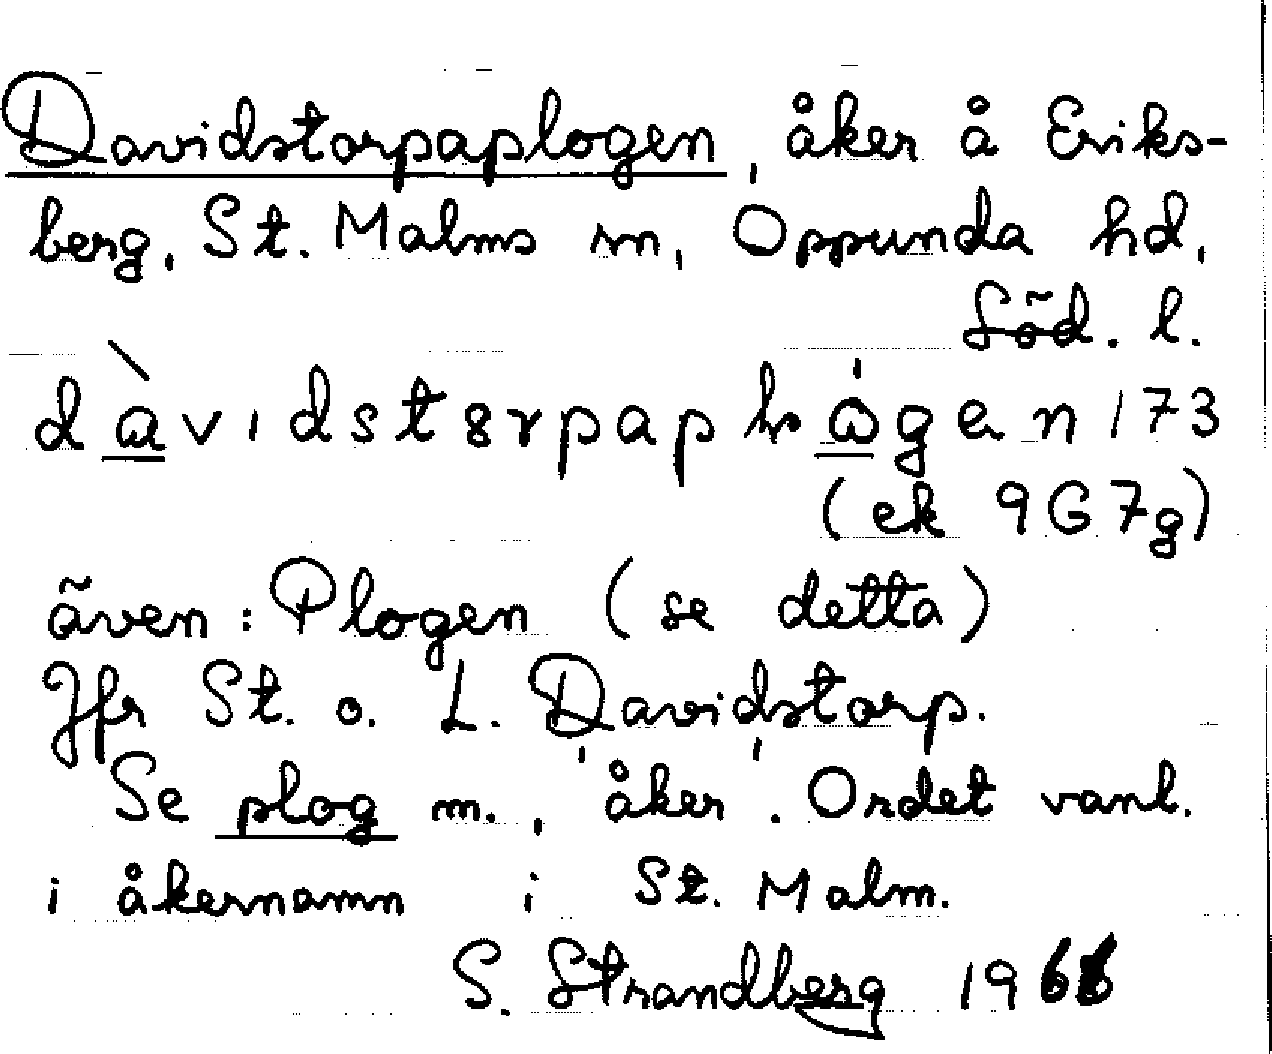 Davidstorpaplogen, åker å Eriks-
berg, St. Malms sn, Oppunda hd,
Söd. l.
även: Plogen (se detta)
Jfr St. o. L. Davidstorp.
Se plog m., 'åker'. Ordet vanl.
i åkernamn i St. Malm.
(ek 9G7g)
S. Strandberg 196